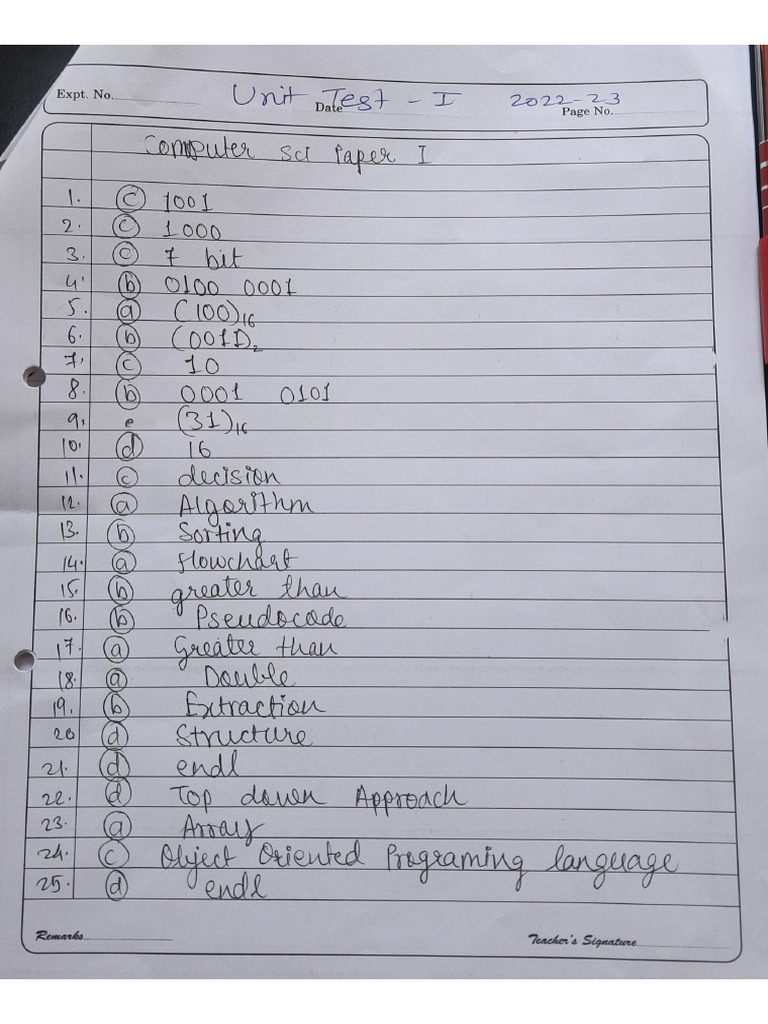 Expt. No. Unit Test - I 2022-23
Date
Page No.
Computer Sci Paper I
1. c 1001
2. c 1000
3. c 7 bit
4. b 0100 0001
5. a (100)16
6. b (001D)2
7. c 10
8. b 0001 0101
9. e (31)16
10. d 16
11. c decision
12. a Algorithm
13. b Sorting
14. a flowchart
15. b greater than
16. b Pseudocode
17. a Greater than
18. a Double
19. b Extraction
20 d Structure
21. d endl
22. d Top down Approach
23. a Array
24. c Object Oriented Programing language
25. d endl
Remarks
Teacher's Signature